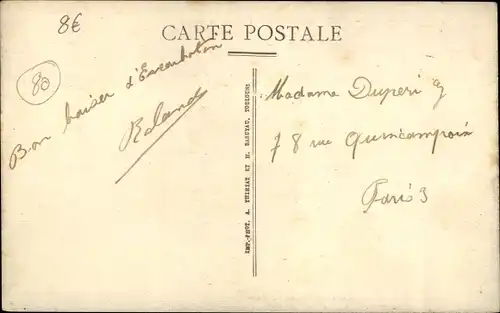 8€
CARTE POSTALE
80
Bon baiser d'Escanholon
Roland
IMP.-PHOT. A. THIRIAT ET H. BASUYAU, TOULOUSE
Madame Duperi
78 rue Quincampoix
Paris 3